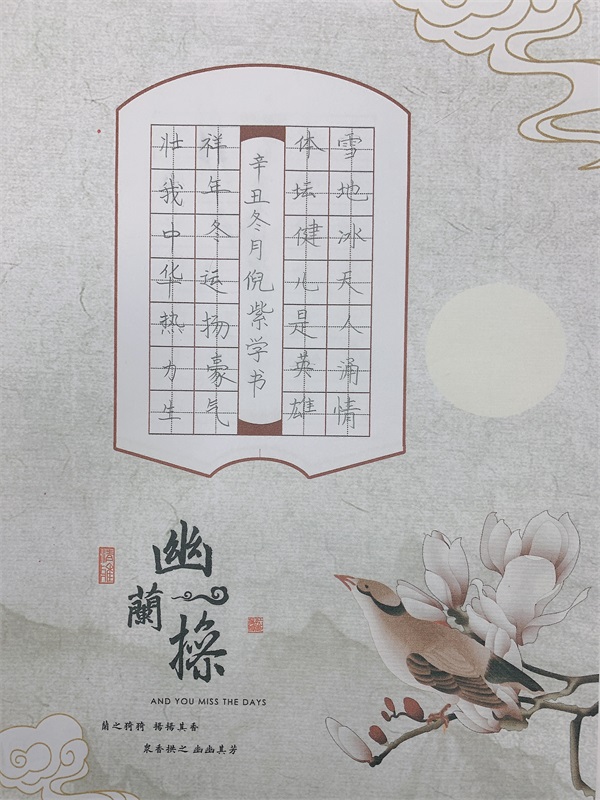 雪地冰天人涌情
体坛健儿是英雄
辛丑冬月倪紫学书
祥年冬运扬豪气
壮我中华热力生
幽蘭操
AND YOU MISS THE DAYS
蘭之猗猗 揚揚其香
眾香拱之 幽幽其芳